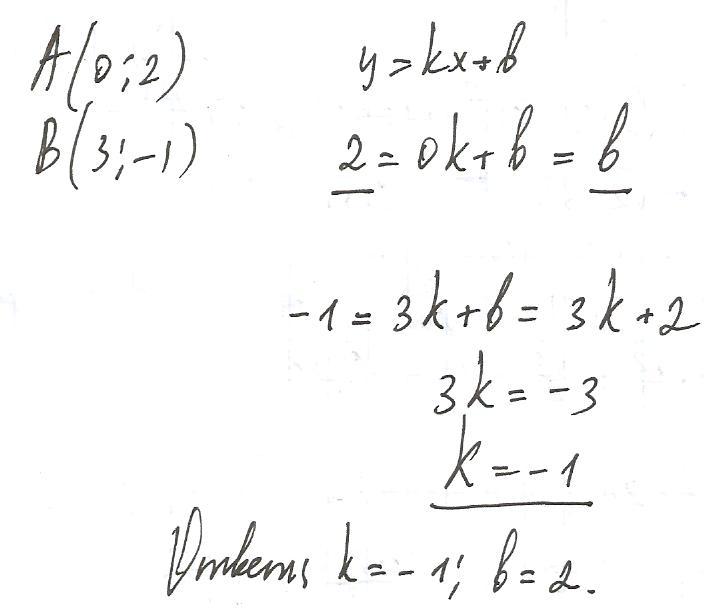 A(0;2) y=kx+b
B(3;-1) 2=0k+b=b
-1=3k+b=3k+2
3k=-3
k=-1
Ответ, k=-1; b=2.